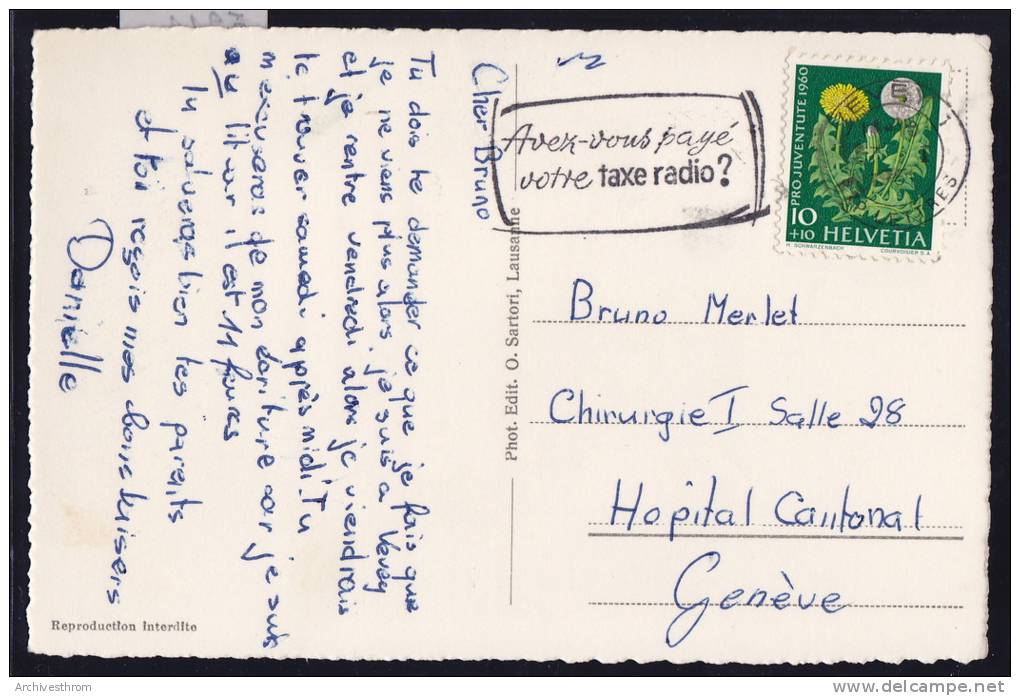 Cher Bruno
Tu dois te demander ce que je fais que
je ne viens plus alors je suis a Vevey
et je rentre vendredi alors je viendrais
te trouver samedi après midi. Tu
m'excuseras de mon écriture car je suis
au lit car il est 11 heures
Tu salueras bien tes parents
et toi reçois mes bons baisers
Danielle
Reproduction interdite
Phot. Edit. O. Sartori, Lausanne
Avez-vous payé
votre taxe radio?
PRO JUVENTUTE 1960
10
+10 HELVETIA
H. SCHWARZENBACH COURVOISIER S.A.
Bruno Merlet
Chirurgie I Salle 28
Hopital Cantonal
Genève
Archivesthrom
www.delcampe.net